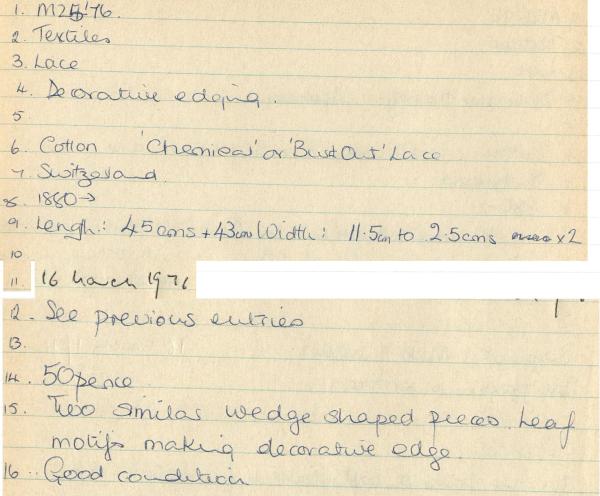 1. M25'76.
2. Textiles
3. Lace
4. Decorative edging.
5
6. Cotton 'Chemical' or 'Burnt Out' Lace
7. Switzerland.
8. 1880→
9. Length: 45cms + 43cms Width: 11.5cm to 2.5cms x2
10
11. 16 March 1976
12. See previous entries
13.
14. 50 pence
15. Two similar wedge shaped pieces. Leaf
motifs making decorative edge.
16. Good condition